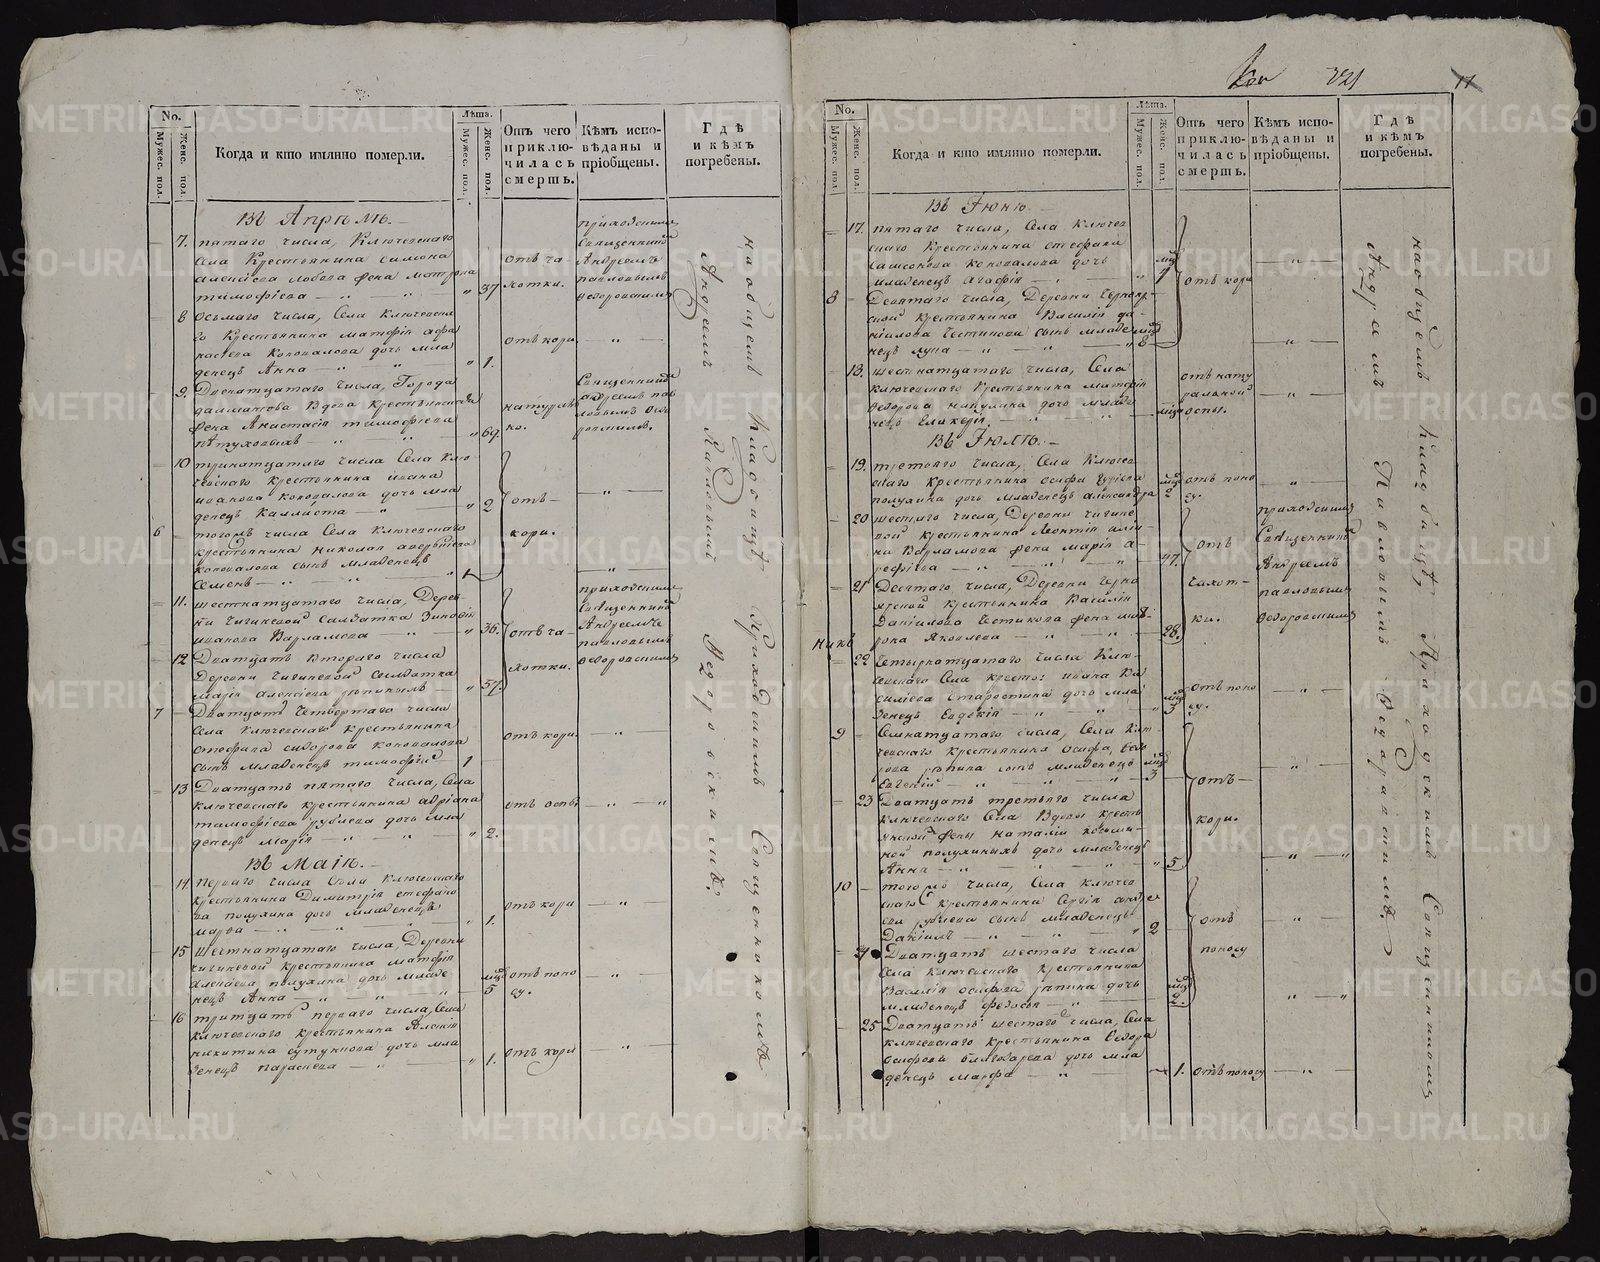 No.
Мужес. пол.
Женс. пол.
Когда и кто имянно померли.
Лѣта.
Мужес. пол.
Женс. пол.
Отъ чего
приклю-
чилась
смерть.
Кѣмъ испо-
вѣданы и
пріобщены.
Гдѣ
и кѣмъ
погребены.
Въ Апрѣлѣ.
7. пятаго числа, Ключевскаго
села Крестьянина Симона
Алексѣева Лобова жена Матрона
тимофѣева 37
отъ ча-
хотки.
приходскимъ
Священникомъ
Андреемъ
павловымъ
Ѳедоровскимъ
8 Осьмаго числа, Села Ключевска-
го Крестьянина Матфія Афа
насьева Коновалова дочь мла
денецъ Анна 1.
отъ кори.
9. Двенатцатаго числа, Города
далматова Вдова Крестьянская
жена Анастасія тимофѣева
пѣтуховыхъ 69.
натураль
но.
Священникомъ
андреемъ пав
ловымъ Ѳед
10 тринатцатаго числа Села Клю-
чевскаго крестьянина Ивана
иванова Коновалова дочь мла
денецъ Каллиста 2
отъ
кори.
6 тогожъ числа Села Ключевскаго
крестьянина Николая
коновалова сынъ младенецъ
Семенъ 1
11. шестнатцатаго числа, Дерев-
ни Чигиневой Салдатка Зиновія
иванова Варламова 36.
отъ ча-
хотки.
приходскимъ
Священникомъ
Андреемъ
павловымъ
Ѳедоровскимъ
12 Дватцать втораго числа
Деревни Чигиневой Салдатка
Марія алексѣева рѣпиныхъ 57.
7 Дватцать Четвертаго числа
села Ключевскаго крестьянина
стефана сидорова коновалова
сынъ младенецъ тимофѣй 1
отъ кори
13 Дватцать пятаго числа, Села
ключевскаго крестьянина адріана
тимофѣева рублева дочь мла
денецъ Марія 2.
отъ оспы
Въ Маіѣ.
14 Перваго числа Села Ключевскаго
крестьянина Димитрія стефано
ва полухина дочь младенецъ
марѳа 1.
отъ кори
15 шестнатцатаго числа, Деревни
чигиневой крестьянина Матфія
Алексѣева полухина дочь младе
нецъ Анна 5
отъ поно
су.
16 тритцать перваго числа, Села
ключевскаго крестьянина Алексія
никитина сутункова дочь мла
денецъ параскева 1.
отъ кори
на общемъ кладбищѣ Приходскимъ Священникомъ
Андреемъ Павловымъ Ѳедоровскимъ.
221
11
No.
Мужес. пол.
Женс. пол.
Когда и кто имянно померли.
Лѣта.
Мужес. пол.
Женс. пол.
Отъ чего
приклю-
чилась
смерть.
Кѣмъ испо-
вѣданы и
пріобщены.
Гдѣ
и кѣмъ
погребены.
Въ Іюнѣ.
17. пятаго числа, Села Ключев
скаго Крестьянина стефана
Сашонова Коновалова дочь
младенецъ Агафія
отъ кори
8 Девятаго числа, Деревни
Крестьянина Василія да-
ніилова Честикова сынъ младе
нецъ лука 8
18. шестнатцатаго числа, Села
ключевскаго Крестьянина Матфія
Ѳедорова никулина дочь младе
нецъ Гликерія
отъ нату
ральной
оспы.
Въ Іюлѣ.
19. третьяго числа, Села Ключев
скаго крестьянина осифа
полухина дочь младенецъ александра 2
отъ поно
су.
20 шестаго числа, Деревни чигине
вой крестьянина Леонтія
Варламова жена марія а-
рефіева 47.
отъ
чахот-
ки.
приходскимъ
Священникомъ
Андреемъ
павловымъ
Ѳедоровскимъ
21 Десятаго числа, Деревни Черно
ярской крестьянина Василія
Даніилова Честикова жена
Яковлева 28.
22 Четырнатцатаго числа Клю-
чевскаго Села крестья: ивана Ва
силіева Старостина дочь мла
денецъ Евдокія 3
отъ поно
су.
9 Семнатцатаго числа, Села Клю-
чевскаго крестьянина Осифа Ѳедо
рова рѣпина сынъ младенецъ
Евгеній 3
отъ
кори.
23 Дватцать третьяго числа
ключевскаго Села Вдовы кресть
янской жены наталіи
полухиныхъ дочь младенецъ
Анна 5
10 тогожъ числа, Села ключев
скаго Крестьянина Сергія андре
ева рублева сынъ младенецъ
Даніилъ 2
отъ
поносу
24 Дватцать шестаго числа
села ключевскаго крестьянина
Василія осифова рѣпина дочь
младенецъ федосья 2.
25 Дватцать шестаго числа, Села
ключевскаго крестьянина Ѳедора
осифова дочь мла
денецъ Марфа 1.
отъ поносу
на общемъ Кладбищѣ, Приходскимъ Священникомъ
Андреемъ Павловымъ Ѳедоровскимъ.
METRIKI.GASO-URAL.RU